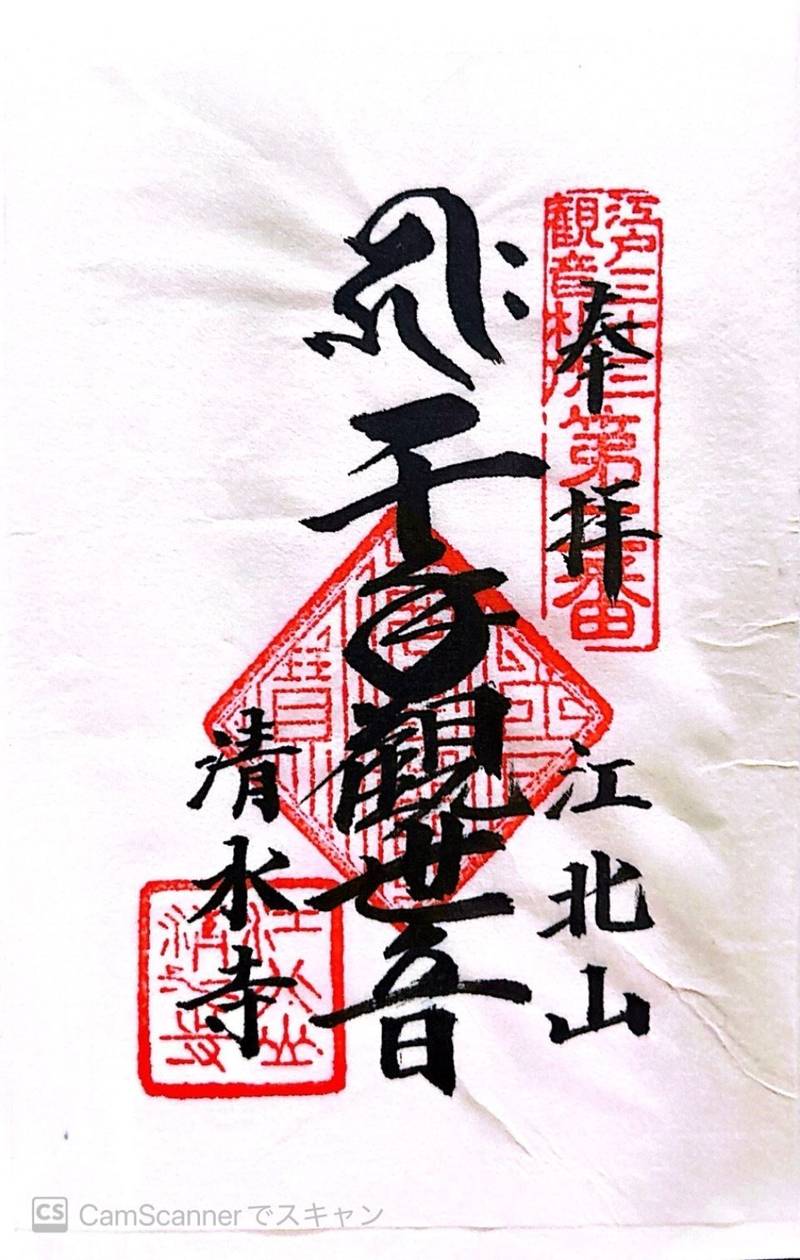 江戸三十三
觀音札所
第二番
奉拝
江北山
千手觀世音
清水寺
CS CamScannerでスキャン